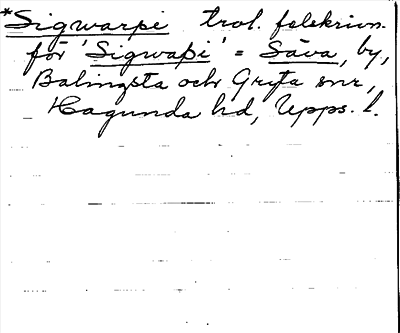 *Sigwarpi trol. felskrivn.
för 'Sigwaþi' = Säva, by,
Balingsta och Gryta snr,
Hagunda hd, Upps. l.